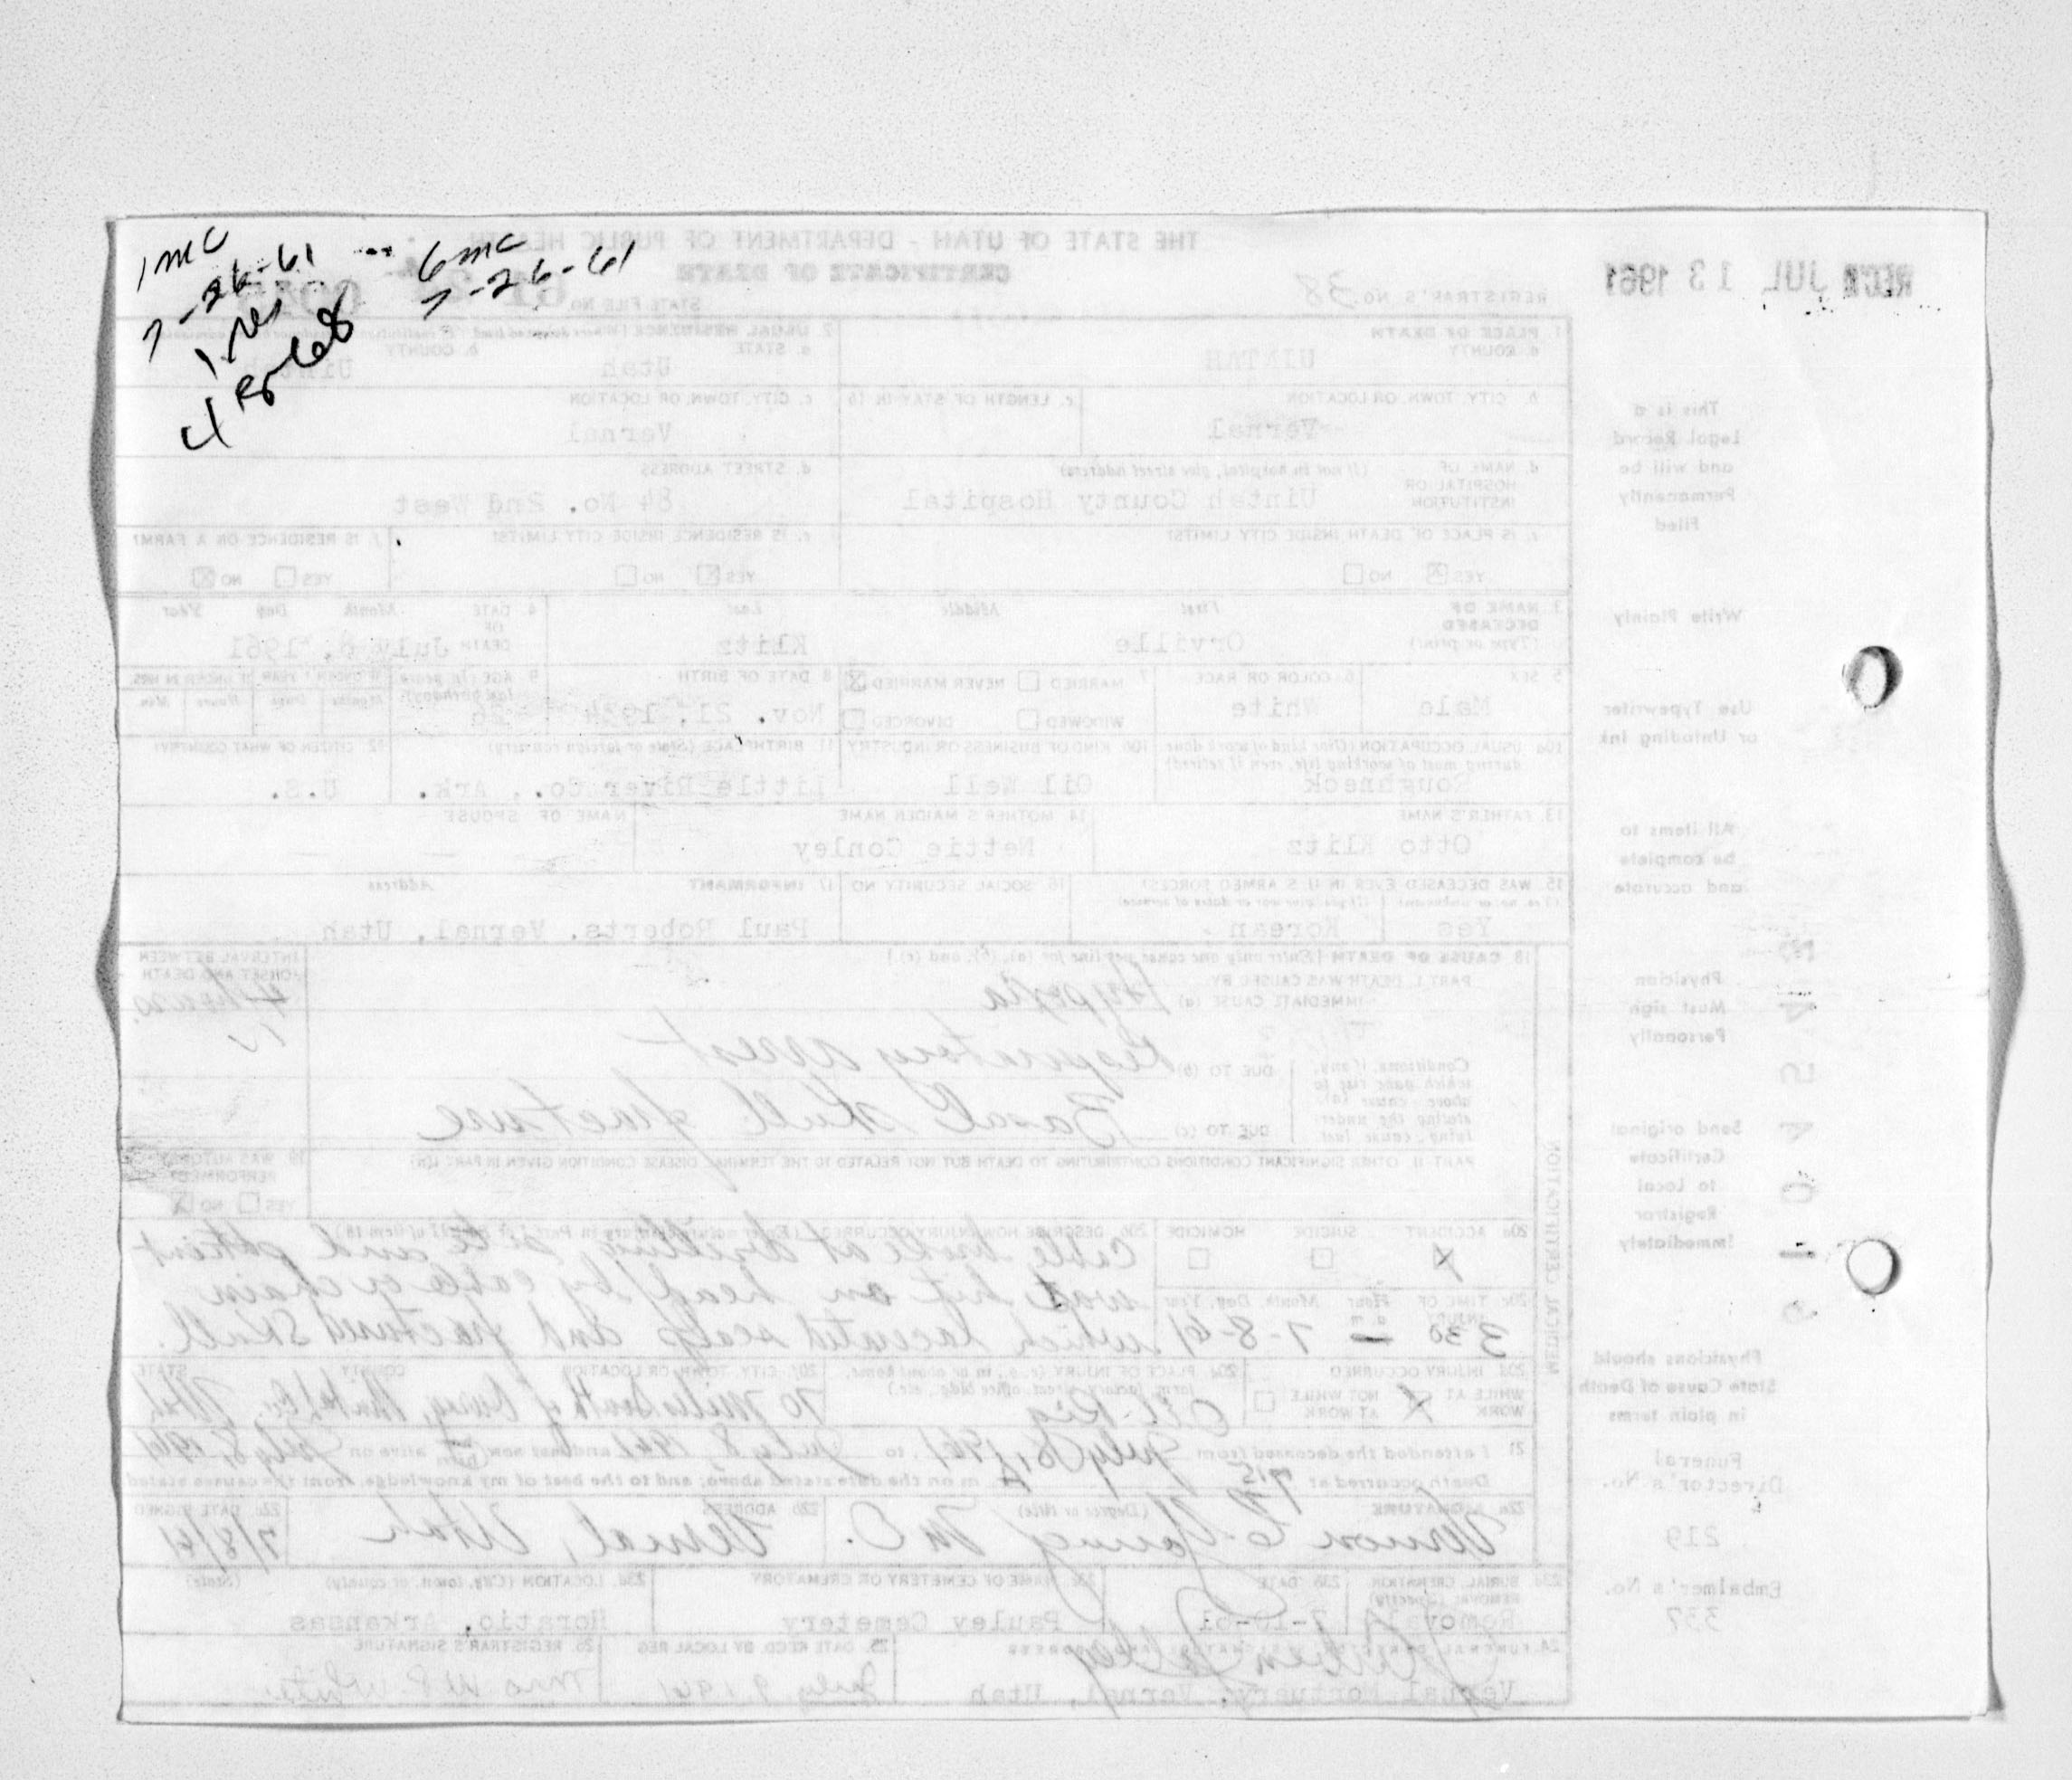 1mc ... 6mc
7-26-61 7-26-61
1 res
4
THE STATE OF UTAH - DEPARTMENT OF PUBLIC HEALTH
CERTIFICATE OF DEATH
REC'D JUL 13 1961
REGISTRAR'S NO. 38
STATE FILE NO.
1. PLACE OF DEATH
a. COUNTY
UINTAH
2. USUAL RESIDENCE
a. STATE
Utah
b. COUNTY
b. CITY, TOWN, OR LOCATION
Vernal
c. LENGTH OF STAY IN 1b
c. CITY, TOWN, OR LOCATION
Vernal
d. NAME OF HOSPITAL OR INSTITUTION (If not in hospital, give street address)
Uintah County Hospital
d. STREET ADDRESS
84 No. 2nd West
e. IS PLACE OF DEATH INSIDE CITY LIMITS?
YES NO
e. IS RESIDENCE INSIDE CITY LIMITS?
YES NO
f. IS RESIDENCE ON A FARM?
YES NO
3. NAME OF DECEASED (Type or print)
First Middle Last
Orville Klitz
4. DATE OF DEATH Month Day Year
July 8, 1961
5. SEX
Male
6. COLOR OR RACE
White
7. MARRIED NEVER MARRIED
WIDOWED DIVORCED
8. DATE OF BIRTH
Nov. 21, 1934
9. AGE (In years last birthday)
26
IF UNDER 1 YEAR IF UNDER 24 HRS.
Months Days Hours Min.
10a. USUAL OCCUPATION (Give kind of work done during most of working life, even if retired)
Roughneck
10b. KIND OF BUSINESS OR INDUSTRY
Oil Well
11. BIRTHPLACE (State or foreign country)
Little River Co., Ark.
12. CITIZEN OF WHAT COUNTRY?
U.S.
13. FATHER'S NAME
Otto Klitz
14. MOTHER'S MAIDEN NAME
Nettie Conley
NAME OF SPOUSE
15. WAS DECEASED EVER IN U.S. ARMED FORCES?
(Yes, no, or unknown) (If yes, give war or dates of service)
Yes Korean
16. SOCIAL SECURITY NO.
17. INFORMANT Address
Paul Roberts, Vernal, Utah
18. CAUSE OF DEATH [Enter only one cause per line for (a), (b), and (c).]
PART I. DEATH WAS CAUSED BY:
IMMEDIATE CAUSE (a) Hypoxia
INTERVAL BETWEEN ONSET AND DEATH
4 hours
Conditions, if any, which gave rise to above cause (a), stating the underlying cause last.
DUE TO (b) Respiratory arrest
DUE TO (c) Basal skull fracture
PART II. OTHER SIGNIFICANT CONDITIONS CONTRIBUTING TO DEATH BUT NOT RELATED TO THE TERMINAL DISEASE CONDITION GIVEN IN PART I(a)
19. WAS AUTOPSY PERFORMED?
YES NO
20a. ACCIDENT SUICIDE HOMICIDE
20b. DESCRIBE HOW INJURY OCCURRED. (Enter nature of injury in Part I or Part II of item 18.)
Cable broke at drilling site and patient
was hit on head by cable or chain
which lacerated scalp and fractured skull.
20c. TIME OF INJURY Hour Month, Day, Year
3 30 7-8-61
20d. INJURY OCCURRED
WHILE AT WORK NOT WHILE AT WORK
20e. PLACE OF INJURY (e.g., in or about home, farm, factory, street, office bldg., etc.)
Oil Rig
20f. CITY, TOWN, OR LOCATION COUNTY STATE
70 miles South of Ouray, Uintah Co., Utah
21. I attended the deceased from July 8, 1961, to July 8, 1961 and last saw him alive on July 8, 1961
Death occurred at 7 15 m on the date stated above; and to the best of my knowledge, from the causes stated
22a. SIGNATURE (Degree or title)
Vernon C. Young M.D.
22b. ADDRESS
Vernal, Utah
22c. DATE SIGNED
7/8/61
23a. BURIAL, CREMATION, REMOVAL (Specify)
Removal
23b. DATE
7-10-61
23c. NAME OF CEMETERY OR CREMATORY
Pauley Cemetery
23d. LOCATION (City, town, or county) (State)
Horatio, Arkansas
24. FUNERAL DIRECTOR'S SIGNATURE AND ADDRESS
Vernal Mortuary, Vernal, Utah
25. DATE REC'D. BY LOCAL REG.
July 9 1961
26. REGISTRAR'S SIGNATURE
MEDICAL CERTIFICATION
This is a
Legal Record
and will be
Permanently
Filed
Write Plainly
Use Typewriter
or Unfading Ink
All items to
be complete
and accurate
Physician
Must sign
Personally
Send original
Certificate
to Local
Registrar
Immediately
Physicians should
State Cause of Death
in plain terms
Funeral
Director's No.
219
Embalmer's No.
337